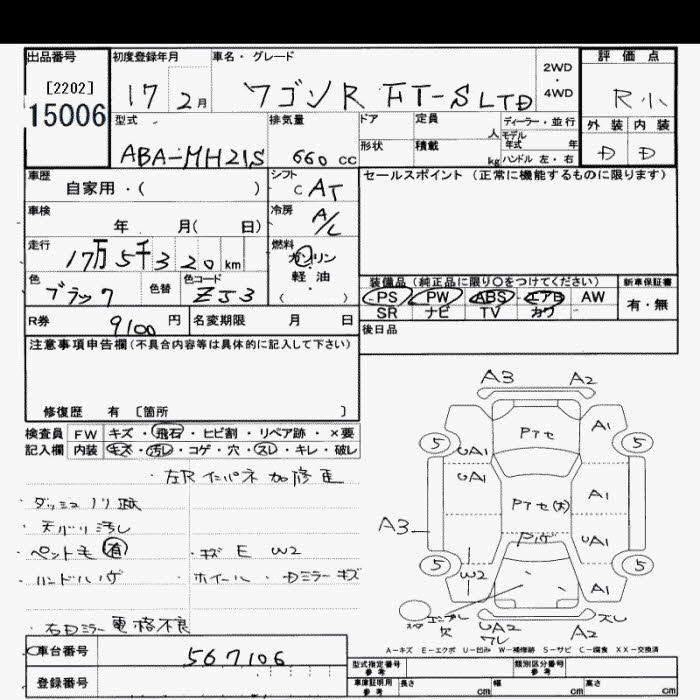 出品番号 初度登録年月 車名・グレード 評価点
[2202] 17 2月 ワゴンR FT-S LTD 2WD・4WD R小
15006
型式 排気量 ドア 定員 人 ディーラー・並行 外装 内装
ABA-MH21S 660 cc 形状 積載 kg モデル年式 年 ハンドル 左・右 D D
車歴 シフト セールスポイント (正常に機能するものに限ります)
自家用・( ) C AT
車検 冷房
年 月( 日) A/C
走行 燃料
17万5千320 km ガソリン
軽・油
( )
色 色替 色コード 装備品 (純正品に限り○をつけてください) 新車保証書
ブラック ZJ3 PS PW ABS エアB AW 有・無
SR ナビ TV カワ
R券 9100 円 名変期限 月 日 後日品
注意事項申告欄(不具合内容等は具体的に記入して下さい)
修復歴 有 〔箇所 〕
検査員 FW キズ・飛石・ヒビ割・リペア跡・×要
記入欄 内装 キズ・汚レ・コゲ・穴・スレ・キレ・破レ
左Rインパネ加修正
・ダッシュノリ跡
・天バリ汚レ
・ペット毛 有 ・キズ E W2
・ハンドルハゲ ・ホイール・Dミラーキズ
・右Dミラー電格不良
A3 A2
Pアセ A1
5 UA1 5
UA1
Pアセ(大) A1
A3
Pハゲ UA1
5 W2 A1 5
穴 UA2 スレ
ワレ A2
A-キズ E-エクボ U-凹み W-補修跡 S-サビ C-腐食 XX-交換済
車台番号 567106
登録番号
型式指定番号 参考 類別区分番号 参考
車庫証明用 参考 長さ cm 幅 cm 高さ cm